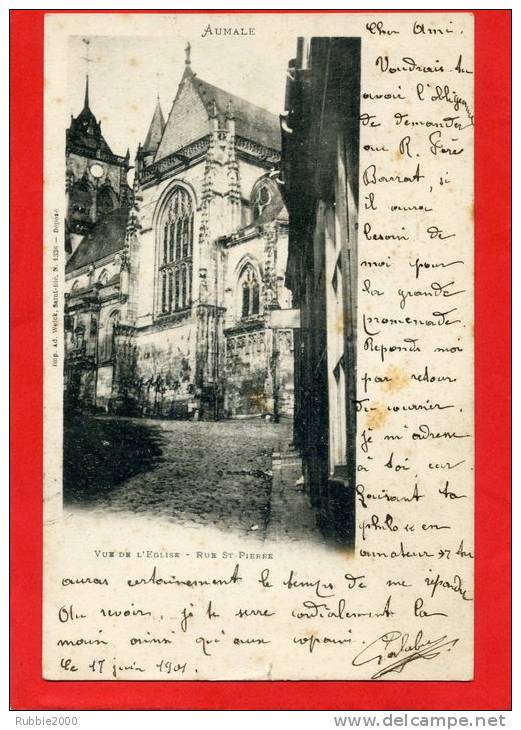 AUMALE
Imp. Ad. Weick, Saint-Dié, N. 1328 — Déposé
VUE DE L'EGLISE - RUE ST-PIERRE
Cher Ami.
Voudrais-tu
avoir l'obligeance
de demander
au R. Père
Barrat, si
il aura
besoin de
moi pour
la grande
promenade.
Reponds moi
par retour
du courrier.
Je m'adresse
à toi car
faisant ta
philo « en
amateur » tu
auras certainement le temps de me répondre
Au revoir, je te serre cordialement la
main ainsi qu'aux copains.
Le 17 juin 1901.
Rubbie2000
www.delcampe.net